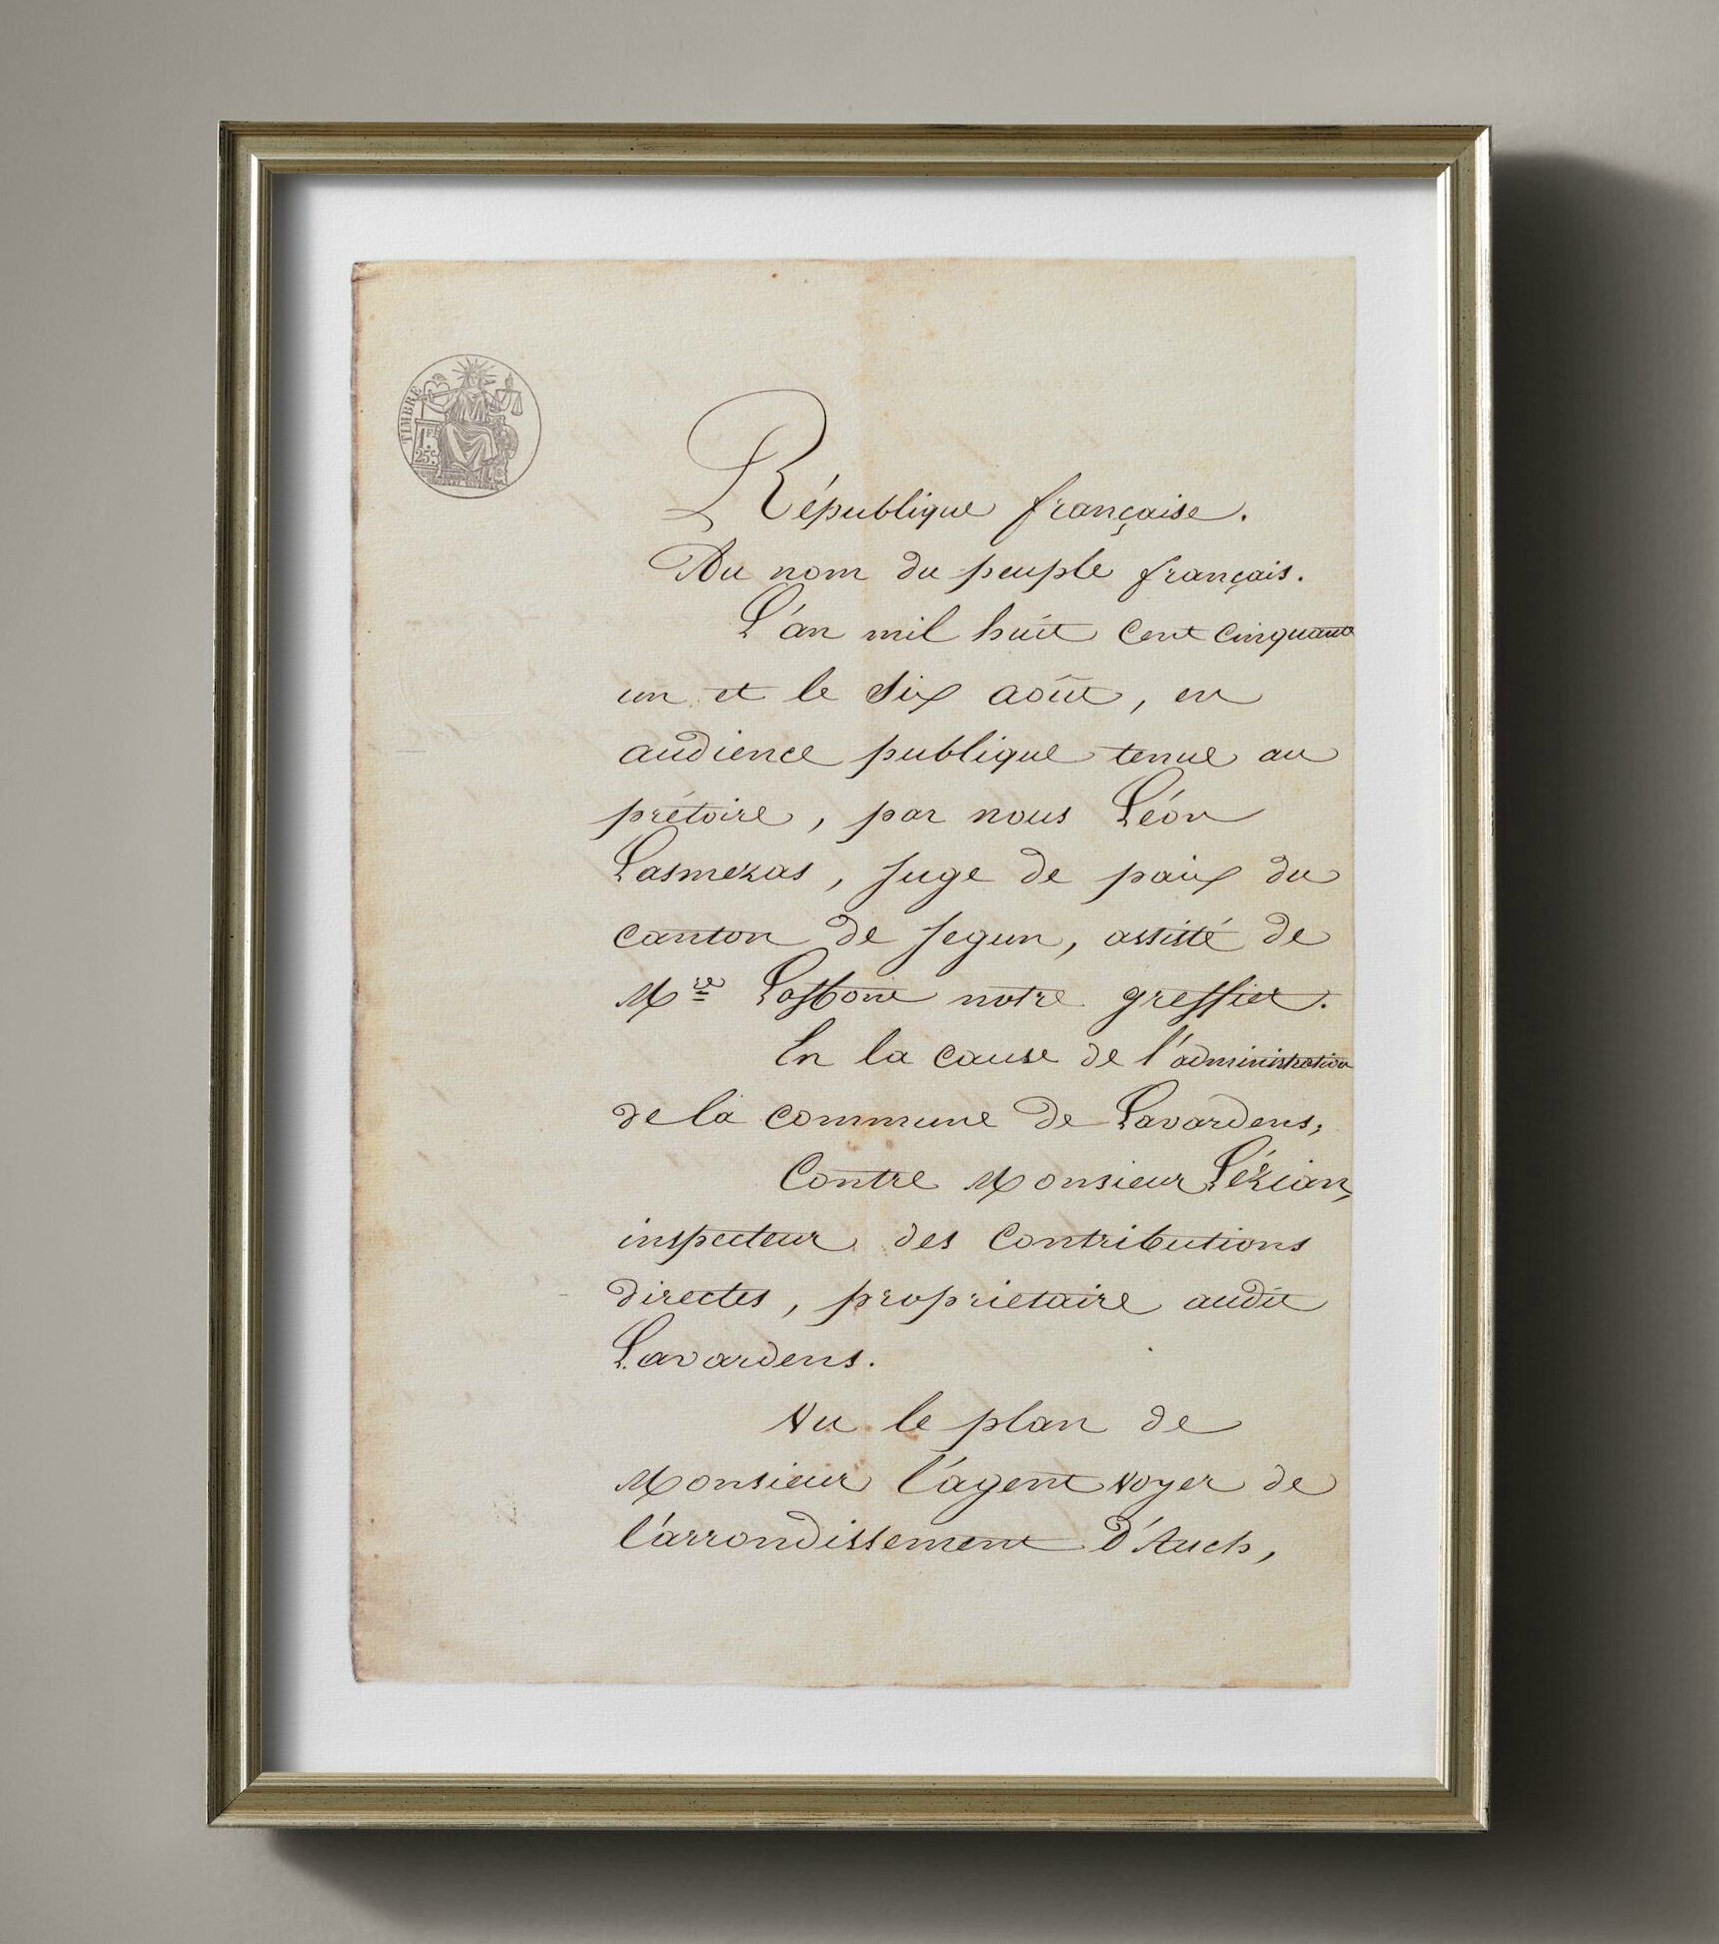 TIMBRE
1 F.
25 c.
République française.
Au nom du peuple français.
L'an mil huit cent cinquante
un et le six août, en
audience publique tenue au
prétoire, par nous Léon
Lasmezas, juge de paix du
canton de Jegun, assisté de
Mre notre greffier.
En la cause de l'administration
de la commune de Lavardens,
Contre Monsieur Lézian,
inspecteur des contributions
directes, proprietaire audit
Lavardens.
Vu le plan de
Monsieur l'agent voyer de
l'arrondissement d'Auch,